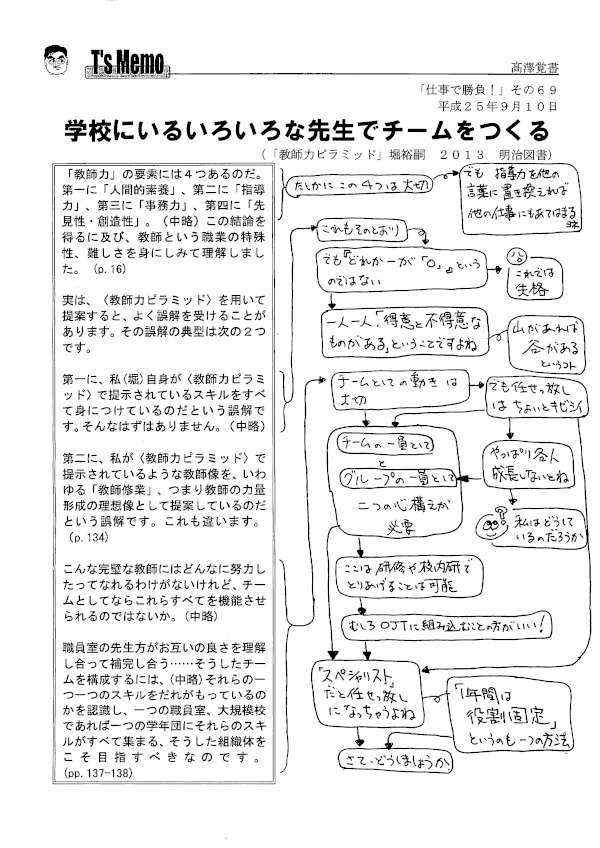 T's Memo
髙澤覚書
「仕事で勝負！」その６９
平成２５年９月１０日
学校にいるいろいろな先生でチームをつくる
（「教師力ピラミッド」堀裕嗣　２０１３　明治図書）
「教師力」の要素には４つあるのだ。
第一に「人間的素養」、第二に「指導
力」、第三に「事務力」、第四に「先
見性・創造性」。（中略）この結論を
得るに及び、教師という職業の特殊
性、難しさを身にしみて理解しまし
た。（p.16）
実は、〈教師力ピラミッド〉を用いて
提案すると、よく誤解を受けることが
あります。その誤解の典型は次の２つ
です。
第一に、私（堀）自身が〈教師力ピラミ
ッド〉で提示されているスキルをすべ
て身につけているのだという誤解で
す。そんなはずはありません。（中略）
第二に、私が〈教師力ピラミッド〉で
提示されているような教師像を、いわ
ゆる「教師修業」、つまり教師の力量
形成の理想像として提案しているのだ
という誤解です。これも違います。
（p.134）
こんな完璧な教師にはどんなに努力し
たってなれるわけがないけれど、チー
ムとしてならこれらすべてを機能させ
られるのではないか。（中略）
職員室の先生方がお互いの良さを理解
し合って補完し合う……そうしたチー
ムを構成するには、（中略）それらの一
つ一つのスキルをだれがもっているの
かを認識し、一つの職員室、大規模校
であれば一つの学年団にそれらのスキ
ルがすべて集まる、そうした組織体を
こそ目指すべきなのです。
（pp.137-138）
たしかにこの4つは大切
でも 指導力を他の
言葉に置き換えれば
他の仕事にもあてはまる
これもそのとおり
でも『どれか一が「0」』という
のではない
これでは
失格
一人一人「得意と不得意な
ものがある」ということですよね
山があれば
谷がある
というコト
チームとしての動きは
大切
でも任せっ放し
はちょいとキビシイ
チームの一員として
と
グループの一員として
二つの心構えが
必要
やっぱり各人
成長しないとね
私はどうして
いるのだろうか
ここは研修や校内研で
とりあげることは可能
むしろOJTに組み込むことの方がいい！
「スペシャリスト」
だと任せっ放し
になっちゃうよね
「1年間は
役割固定」
というのも一つの方法
さて、どうしましょうか